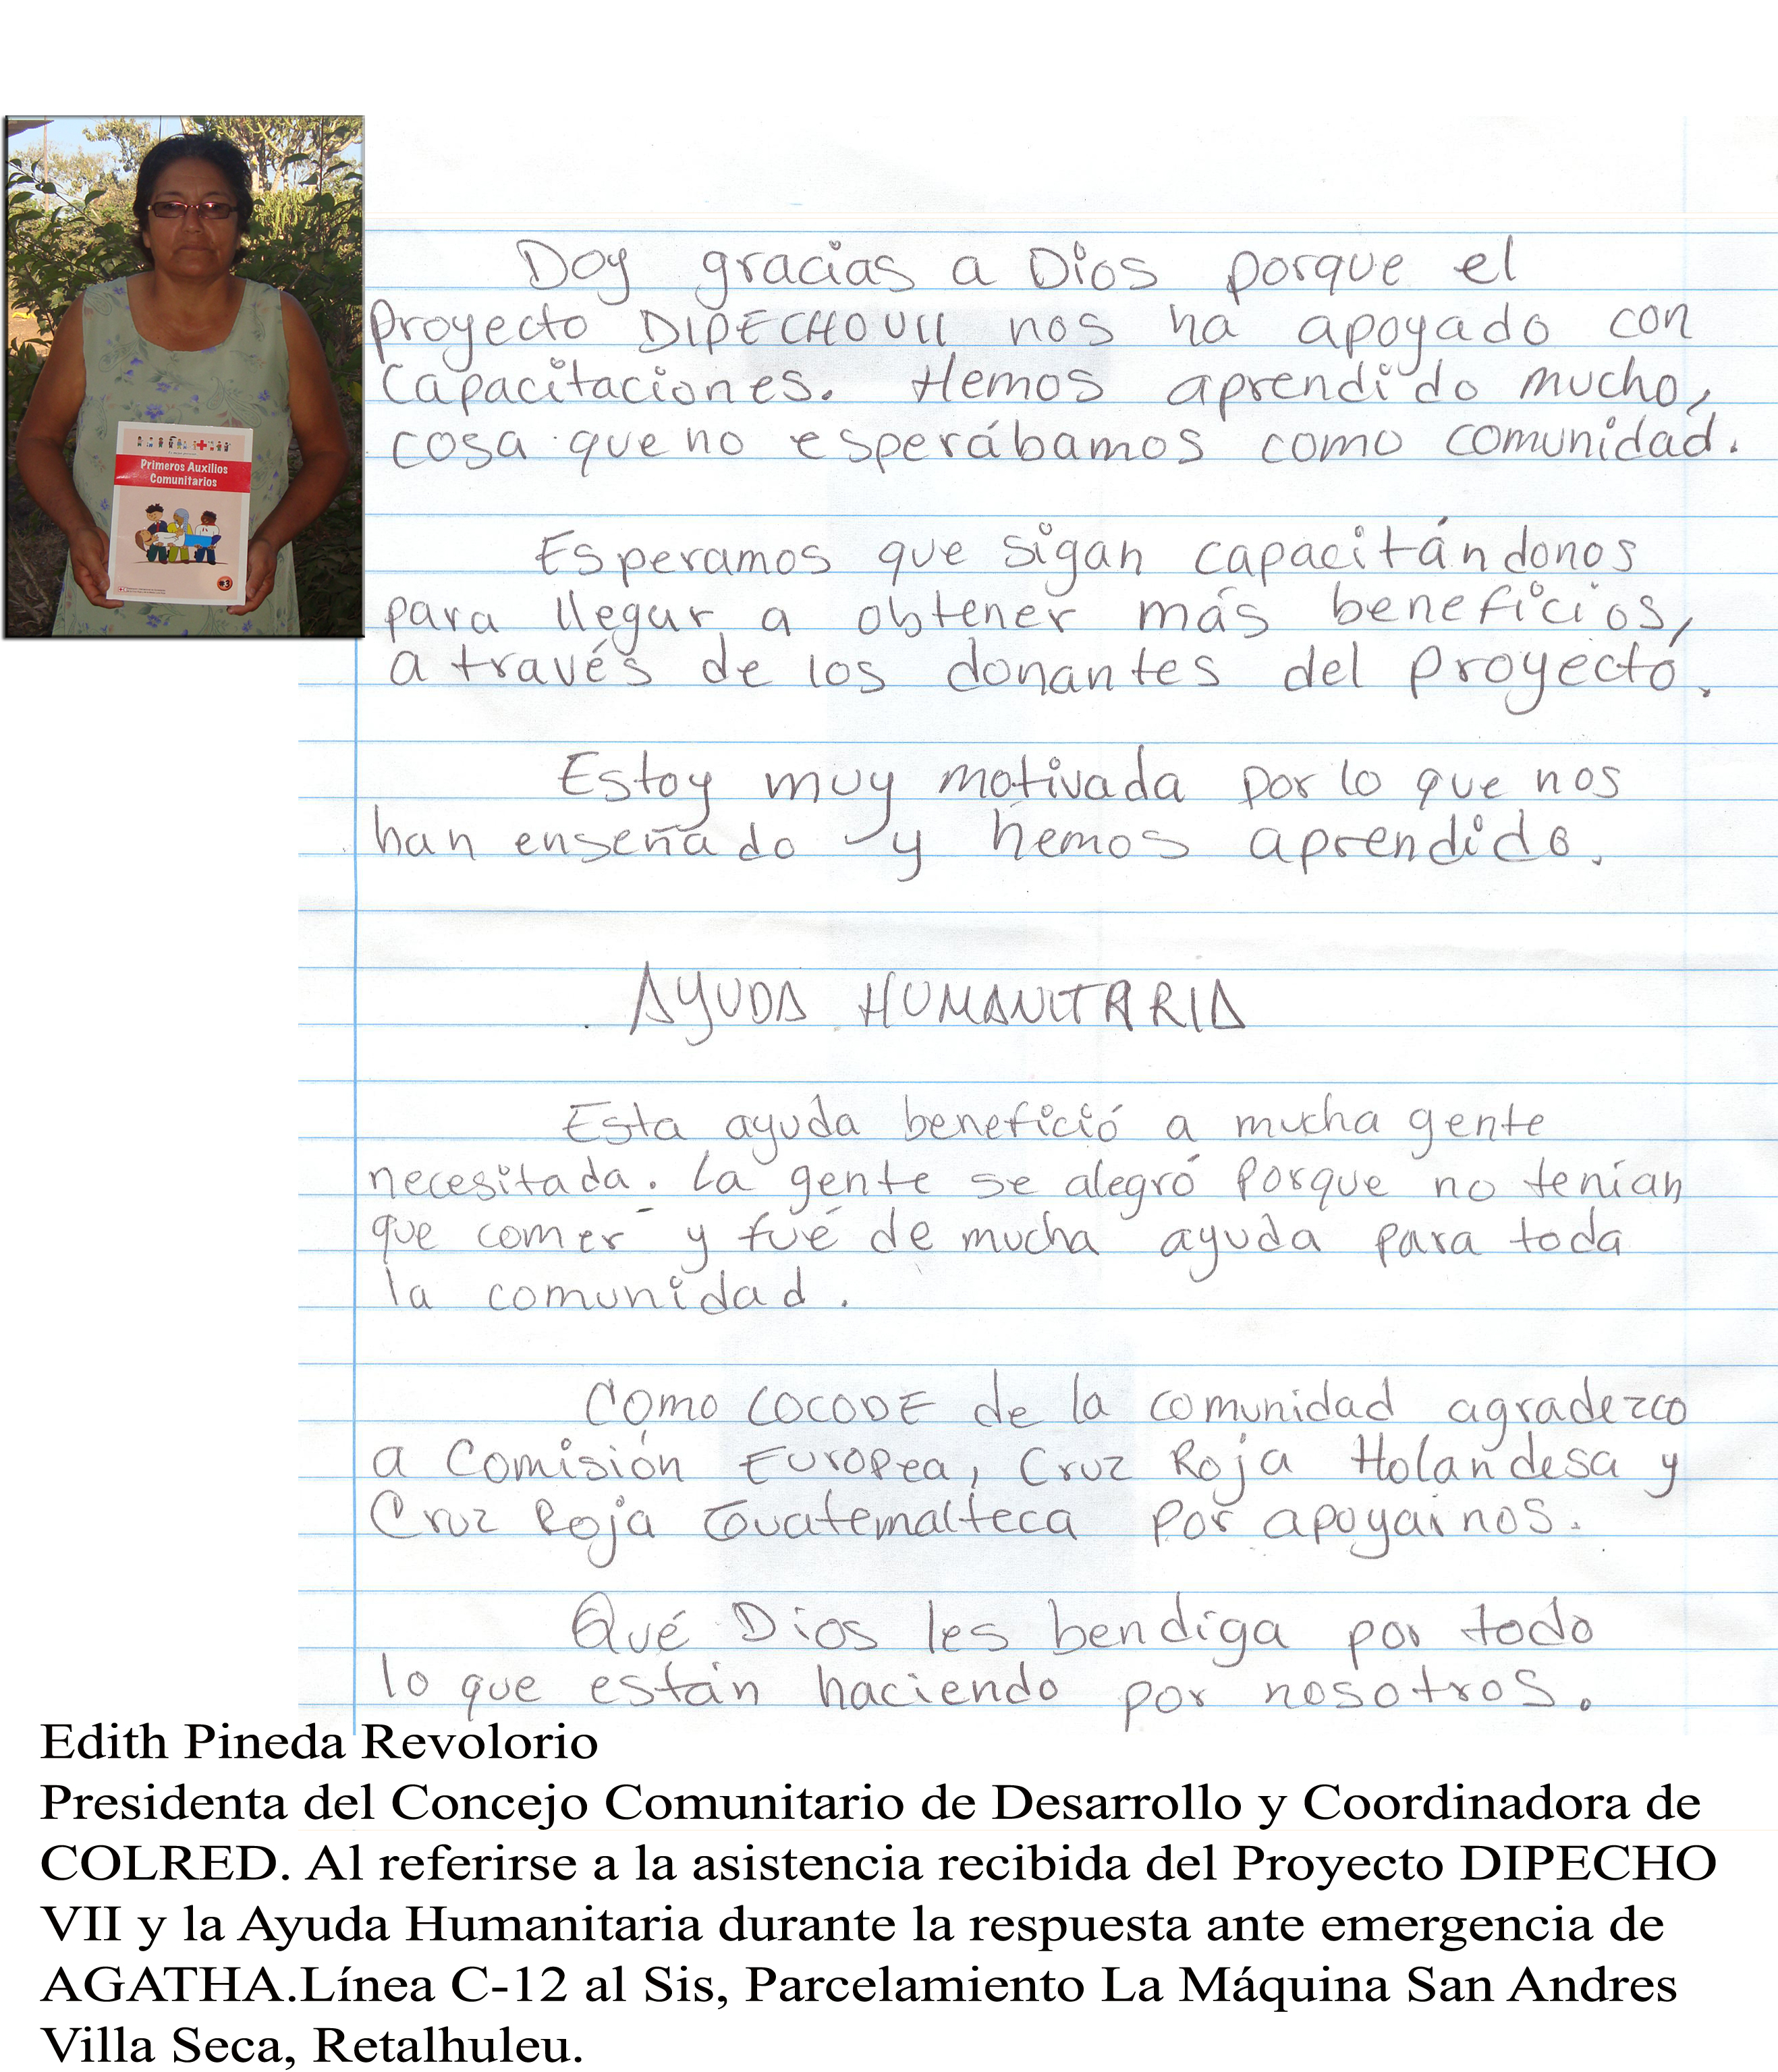 Primeros Auxilios
Comunitarios
#3
Doy gracias a Dios porque el
Proyecto DIPECHO VII nos ha apoyado con
Capacitaciones. Hemos aprendido mucho,
cosa que no esperábamos como comunidad.
Esperamos que sigan capacitándonos
para llegar a obtener más beneficios,
a través de los donantes del proyecto.
Estoy muy motivada por lo que nos
han enseñado y hemos aprendido.
AYUDA HUMANITARIA
Esta ayuda benefició a mucha gente
necesitada. La gente se alegró porque no tenían
que comer y fué de mucha ayuda para toda
la comunidad.
Como COCODE de la comunidad agradezco
a Comisión Europea, Cruz Roja Holandesa y
Cruz Roja Guatemalteca por apoyarnos.
Qué Dios les bendiga por todo
lo que están haciendo por nosotros.
Edith Pineda Revolorio
Presidenta del Concejo Comunitario de Desarrollo y Coordinadora de
COLRED. Al referirse a la asistencia recibida del Proyecto DIPECHO
VII y la Ayuda Humanitaria durante la respuesta ante emergencia de
AGATHA.Línea C-12 al Sis, Parcelamiento La Máquina San Andres
Villa Seca, Retalhuleu.